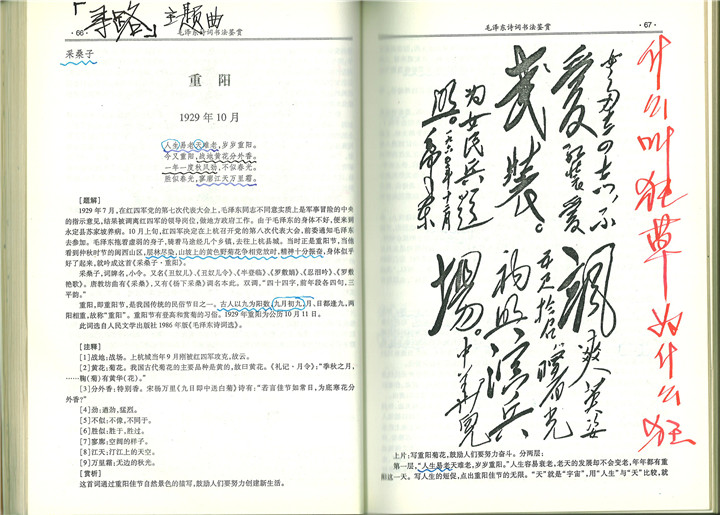 「寻路」主题曲
·66·
毛泽东诗词书法鉴赏
采桑子
重阳
1929年10月
人生易老天难老,岁岁重阳。
今又重阳,战地黄花分外香。
一年一度秋风劲,不似春光。
胜似春光,寥廓江天万里霜。
[题解]
1929年7月,在红四军党的第七次代表大会上,毛泽东同志不同意实质上是军事冒险的中央
的指示意见,结果被调离红四军的领导岗位,做地方政府工作。由于毛泽东的身体不好,便来到
永定县苏家坡养病。10月上旬,红四军决定在上杭召开的第八次代表大会,前委通知毛泽东
去参加。毛泽东拖着虚弱的身子,骑着马途经几个乡镇,去往上杭县城。当时正是重阳节,当他
看到仲秋时节的闽西山区,层林尽染,山坡上的黄色野菊花争相竞放时,精神十分振奋,身体似乎
好了起来,就吟成这首《采桑子·重阳》。
采桑子,词牌名,小令。又名《丑奴儿》、《丑奴儿令》、《半登临》、《罗敷媚》、《忍泪吟》、《罗敷
艳歌》。唐教坊曲有《采桑》,又有《杨下采桑》词名本此。双调,“四十四字,前年段各四句,三
平韵。”
重阳,即重阳节,是我国传统的民俗节日之一。古人以九为阳数,九月初九,月、日都逢九,两
阳相重,故称“重阳”。重阳节有登高和赏菊的习俗。1929年重阳为公历10月11日。
此词选自人民文学出版社1986年版《毛泽东诗词选》。
[注释]
[1]战地:战场。上杭城当年9月刚被红四军攻克,故云。
[2]黄花:菊花。我国古代菊花的主要品种是黄的,故曰黄花。《礼记·月令》:“季秋之月,
……鞠(菊)有黄华(花)。”
[3]分外香:特别香。宋杨万里《九日即中送白菊》诗有:“若言佳节如常日,为底寒花分
外香?”
[4]劲:遒劲,猛烈。
[5]不似:不像,不同于。
[6]胜似:胜于,胜过。
[7]寥廓:空阔的样子。
[8]江天:汀江上的天空。
[9]万里霜:无边的秋光。
[赏析]
这首词通过重阳佳节自然景色的描写,鼓励人们要努力创建新生活。
毛泽东诗词书法鉴赏
·67·
女多奇志不
爱红装爱
武装。
为女民兵题
照。
毛泽东
飒爽英姿
五尺枪曙光
初照演兵
场。中华儿
什么叫狂草 为什么狂
上片:写重阳菊花,鼓励人们要努力奋斗。分两层:
第一层,“人生易老天难老,岁岁重阳。”人生容易衰老,老天的发展却不会变老,年年都有重
阳这一天。写人生的短促,点出重阳佳节的无限。“天”就是“宇宙”,用“人生”与“天”比较,就